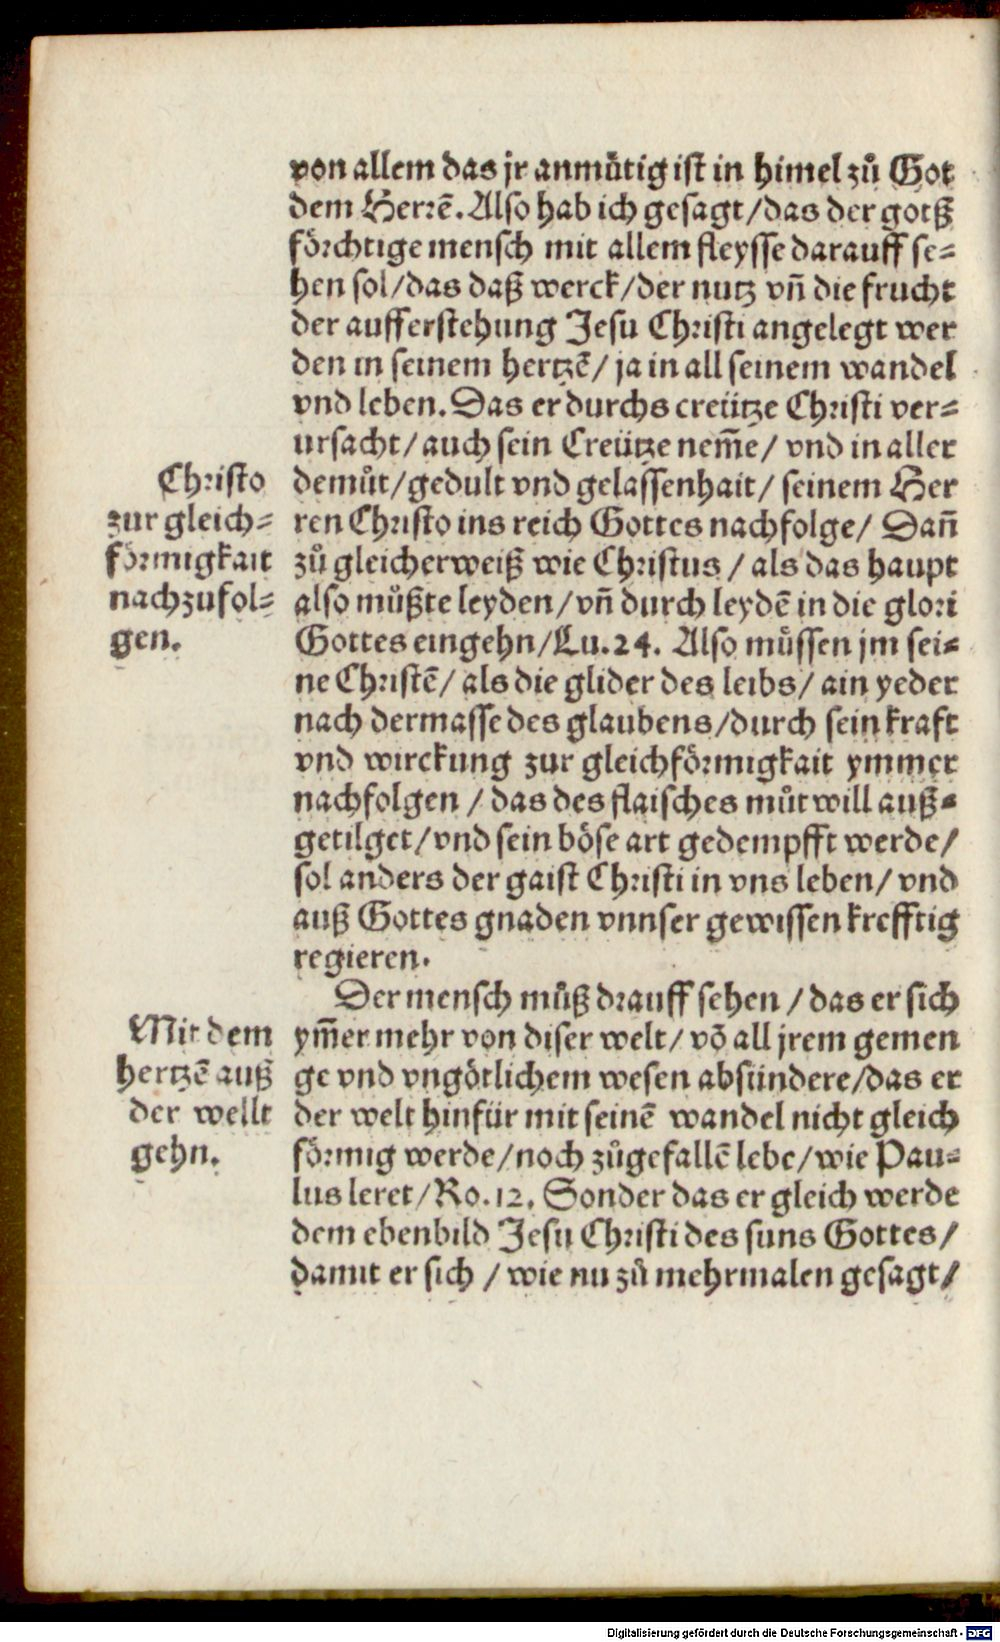 von allem das jr anmůtig ist in himel zů Got
dem Herrē. Also hab ich gesagt/das der gotß
förchtige mensch mit allem fleysse darauff se-
hen sol/das daß werck/der nutz vñ die frucht
der aufferstehung Jesu Christi angelegt wer
den in seinem hertzē/ ja in all seinem wandel
vnd leben. Das er durchs creütze Christi ver-
ursacht/auch sein Creütze nem̃e/ vnd in aller
Christo
zur gleich-
förmigkait
nachzufol-
gen.
demůt/gedult vnd gelassenhait/ seinem Her
ren Christo ins reich Gottes nachfolge/ Dañ
zů gleicherweiß wie Christus / als das haupt
also můßte leyden/vñ durch leydē in die glori
Gottes eingehn/Lu.24. Also müssen jm sei-
ne Christē/ als die glider des leibs/ ain yeder
nach dermasse des glaubens/durch sein kraft
vnd wirckung zur gleichförmigkait ymmer
nachfolgen / das des flaisches můtwill auß-
getilget/vnd sein böse art gedempfft werde/
sol anders der gaist Christi in vns leben/ vnd
auß Gottes gnaden vnnser gewissen krefftig
regieren.
Der mensch můß drauff sehen / das er sich
Mit dem
hertzē auß
der wellt
gehn.
ym̃er mehr von diser welt/ võ all jrem gemen
ge vnd vngötlichem wesen absündere/das er
der welt hinfür mit seinē wandel nicht gleich
förmig werde/noch zůgefallē lebe/wie Pau-
lus leret/Ro.12. Sonder das er gleich werde
dem ebenbild Jesu Christi des suns Gottes/
damit er sich / wie nu zů mehrmalen gesagt/
Digitalisierung gefördert durch die Deutsche Forschungsgemeinschaft - DFG